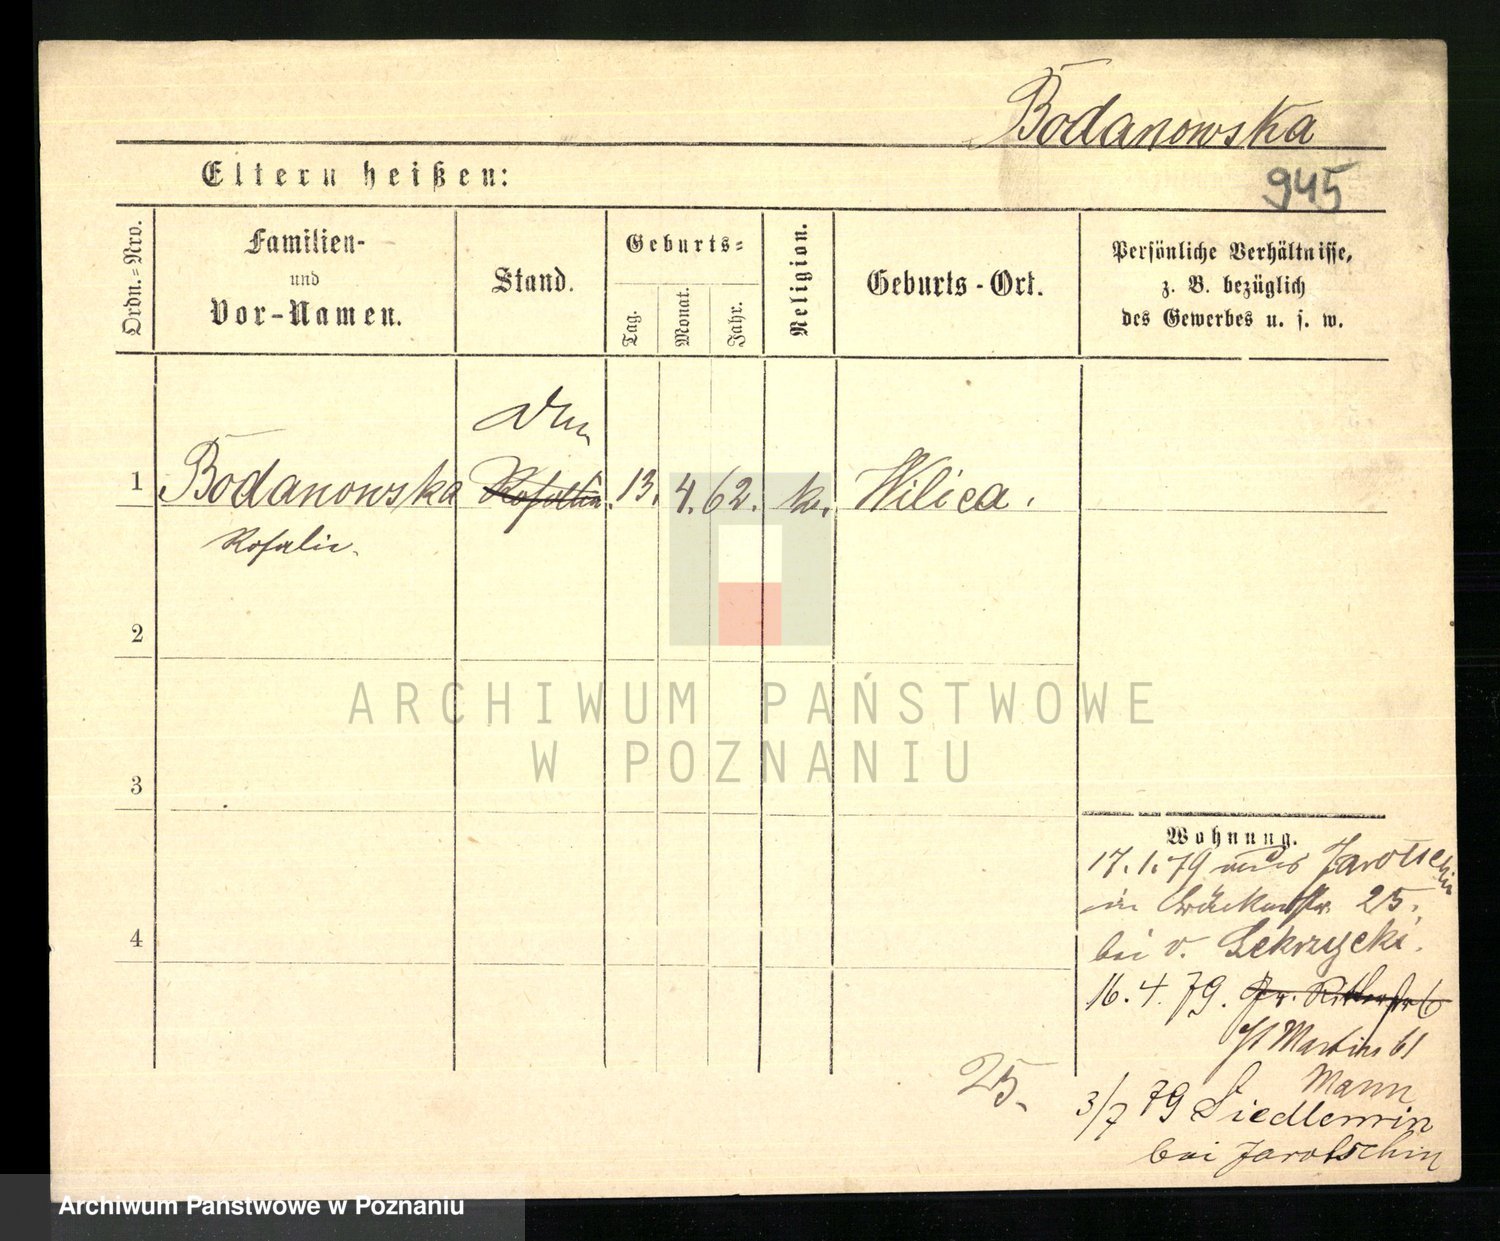 Bodanowska
945
Eltern heißen:
Ordn.=Nro.
Familien-
und
Vor-Namen.
Stand.
Geburts=
Tag.
Monat.
Jahr.
Religion.
Geburts-Ort.
Persönliche Verhältnisse,
z. B. bezüglich
des Gewerbes u. s. w.
1 Bodanowska 13. 4. 62. k. Wilica.
Rosalie.
2
3
4
Wohnung.
17.1.79 Jarotschin
25.
bei v.
16.4.79.
St Martin 61
Mann
3/7 79 Siedlemin
bei Jarotschin
25.
ARCHIWUM PAŃSTWOWE
W POZNANIU
Archiwum Państwowe w Poznaniu